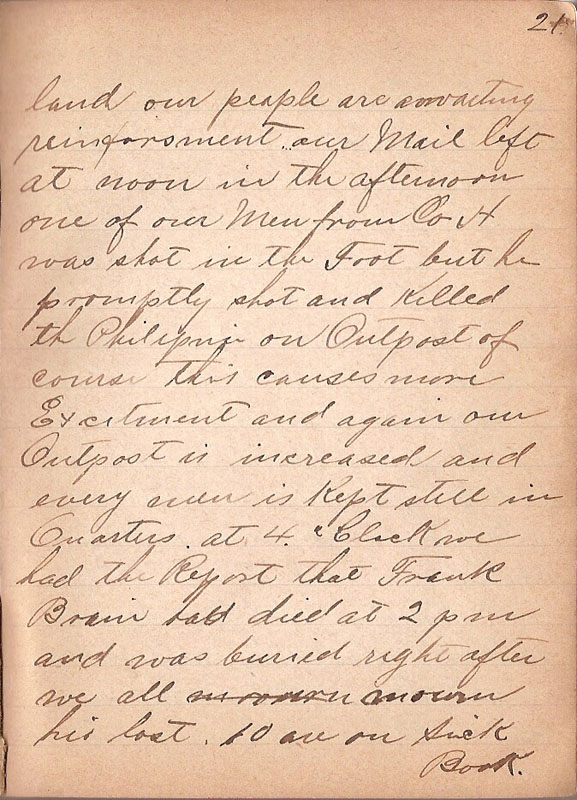 21.
land our people are awaiting
reinforsment. our Mail left
at noon in the afternoon
one of our Men from Co H
was shot in the Foot but he
promptly shot and Killed
th Philipnie on Outpost of
course this causes more
Excitment and again our
Outpost is increased and
every men is Kept still in
Quarters. at 4. "Clock we
had the Report that Frank
Brain had died at 2 pm
and was buried right after
we all mourn
his lost. 10 are on Sick
Book.